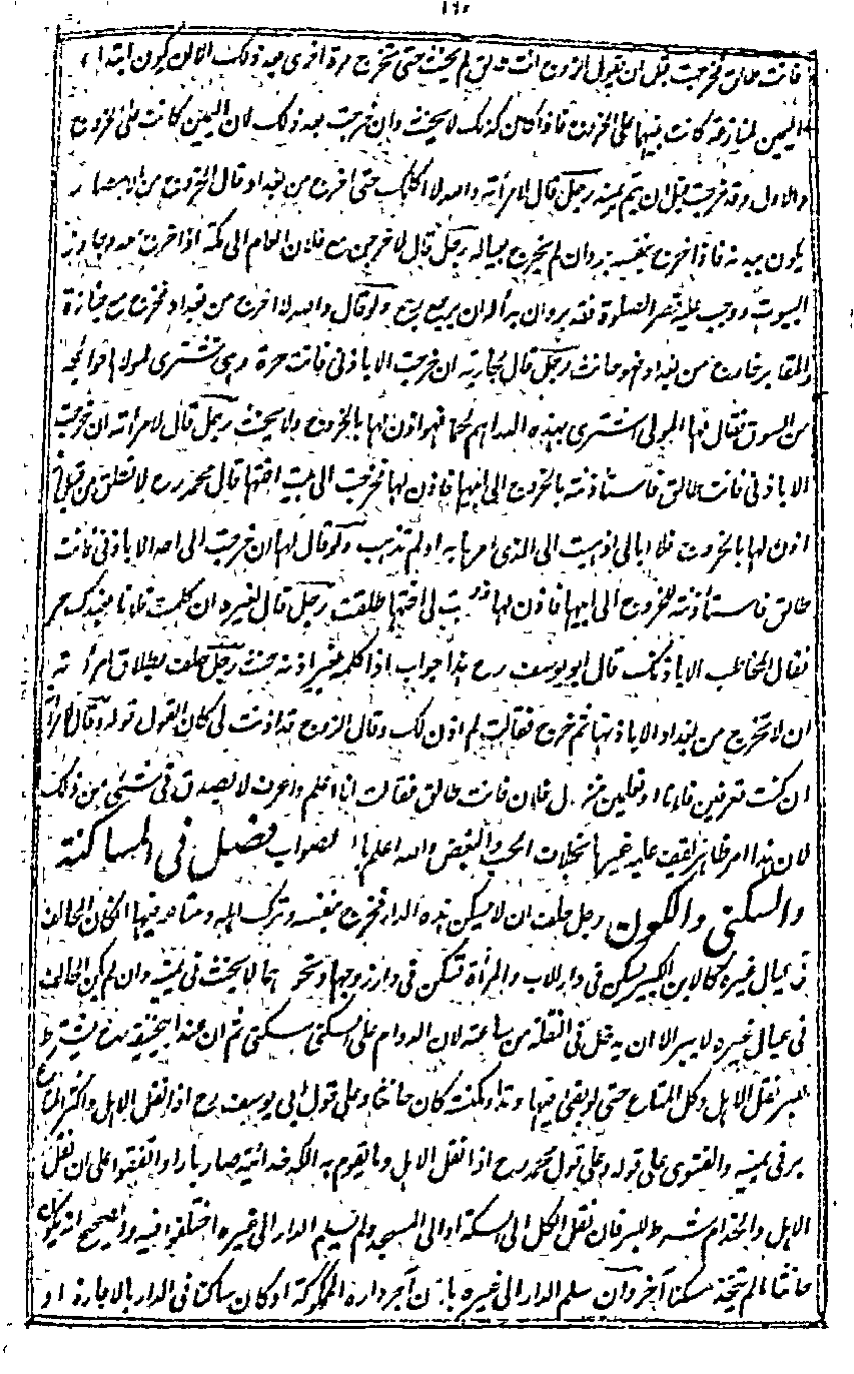 ١٦٠
فانت طالق فخرجت قبل ان يقول الزوج انت طالق لم يحنث حتى تخرج مرة اخرى بعد ذلك الا ان يكون ابتداء
اليمين لمنازعة كانت بينهما على الخروج فاذا كان كذلك لا يحنث وان خرجت بعد ذلك لان اليمين كانت على الخروج
والاول وقد خرجت قبل ان يتم يمينه رجل قال لامرأته والله لا اكلمك حتى اخرج من بغداد قال الخروج من الامصار
يكون ببدنه فاذا خرج بنفسه بر وان لم يخرج بعياله رجل قال لاخرجن مع فلان العام الى مكة اذا خرج معه وجاوز
البيوت ووجب عليه قصر الصلوة فقد بر وان بدا له ان يرجع رجع ولو قال والله لا اخرج من بغداد فخرج مع جنازة
والمقابر خارج من بغداد فهو حانث رجل قال لجاريته ان خرجت الا باذنى فانت حرة وهى تشترى لمولاها حوائجه
من السوق فقال لها المولى اشترى بهذه الدراهم لحما فهو اذن لها بالخروج ولا يحنث رجل قال لامرأته ان خرجت
الا باذنى فانت طالق فاستأذنته بالخروج الى ابيها فاذن لها فخرجت الى بيت اختها قال محمد رح لا تطلق من قبل انه
اذن لها بالخروج فلا ابالى اذهبت الى الذى امرها به او لم تذهب ولو قال لها ان خرجت الى احد الا باذنى فانت
طالق فاستأذنته للخروج الى ابيها فاذن لها فذهبت الى اختها طلقت رجل قال لغيره ان كلمت فلانا فعبدك حر
فقال المخاطب الا باذنك قال ابو يوسف رح هذا جواب اذا كلم بغير اذنه حنث رجل حلف بطلاق امرأته
ان لا تخرج من بغداد الا باذنها ثم خرج فقالت لم اذن لك وقال الزوج قد اذنت لى كان القول قوله وقال لامرأته
ان كنت تعرفين فلانا او تعلمين منزل فلان فانت طالق فقالت انا اعلم واعرف لا تصدق فى شئ من ذلك
لان هذا امر ظاهر يقف عليه غيرها بخلاف الحب والبغض والله اعلم بالصواب فصل فى المساكنة
والسكنى والكون رجل حلف ان لا يسكن هذه الدار فخرج بنفسه وترك اهله ومتاعه فيها ان كان الحالف
فى عيال غيره كالابن الكبير يسكن فى دار للاب والمرأة تسكن فى دار زوجها ونحوهما لا يحنث فى يمينه وان لم يكن الحالف
فى عيال غيره لا يبر الا ان يدخل فى النقلة من ساعته لان الدوام على السكنى سكنى ثم ان عند ابى حنيفة رح يشترط
للبر نقل الاهل وكل المتاع حتى لو بقى فيها وتد او مكنسة كان حانثا وعلى قول ابى يوسف رح اذا نقل الاهل واكثر المتاع
بر فى يمينه والفتوى على قوله وعلى قول محمد رح اذا نقل الاهل وما يقوم به الكدخدائية صار بارا واتفقوا على ان نقل
الاهل والخدام شرط للبر فان نقل الكل الى السكة او الى المسجد ولم يسلم الدار الى غيره اختلفوا فيه والصحيح انه يكون
حانثا ما لم يتخذ مسكنا آخر وان سلم الدار الى غيره بان آجر داره المملوكة او كان ساكنا فى الدار بالاجارة او